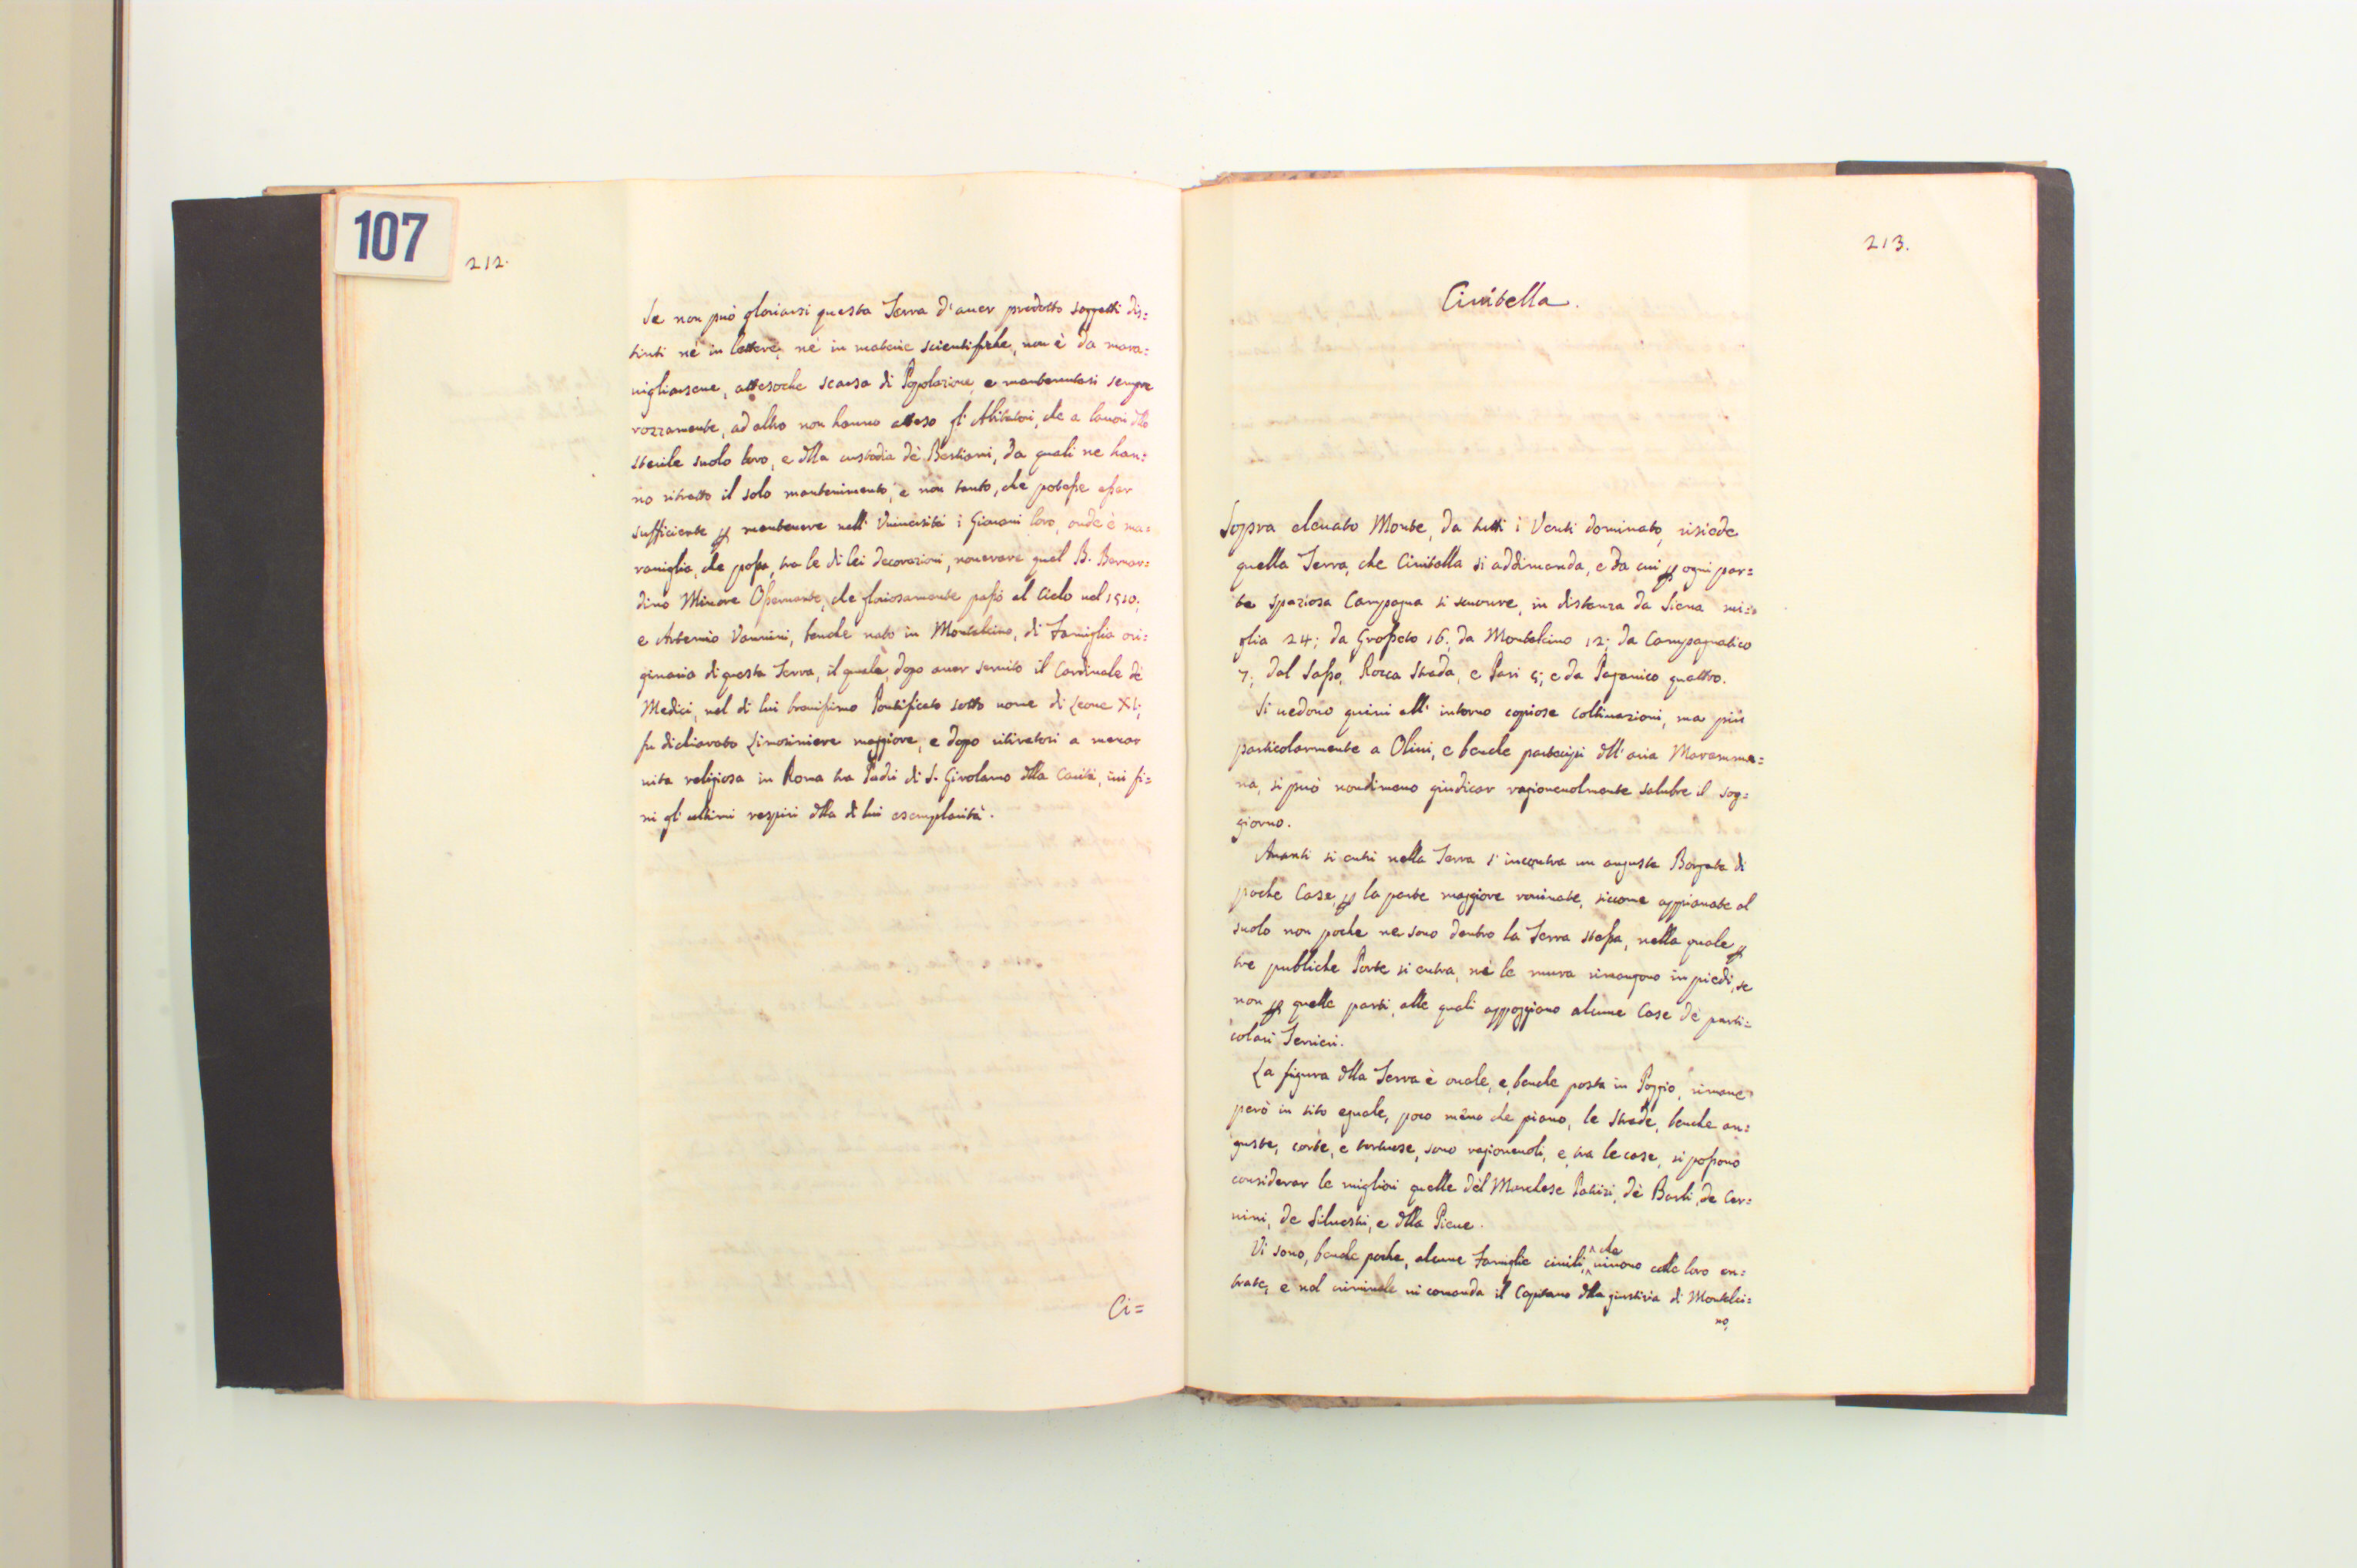 107
212.
Se non può gloriarsi questa Terra d'auer prodotto soggetti dis=
tinti nè in lettere, nè in materie scientifiche, non è da mara=
uigliarsene, attesoche scarsa di Popolazione, e mantenutasi sempre
rozzamente, ad altro non hanno atteso gl'Abitatori, che a lauori dllo
sterile suolo loro, e dlla custodia dè Bestiami, da quali ne han=
no ritratto il solo mantenimento, e non tanto, che potesse esser
sufficiente p mantenere nell'Vniuersità i Giouani loro, onde è ma=
rauiglia, che possa, tra le di lei decorazioni, nouerare quel B. Bernar=
dino Minore Osseruante, che gloriosamente passò al Cielo nel 1510.
e Artemio Vannini, benche nato in Montalcino, di Famiglia ori=
ginaria di questa Terra, il quale, dopo auer seruito il Cardinale dè
Medici, nel di lui breuissimo Pontificato sotto nome di Leone XI;
fu dichiarato Limosiniere maggiore, e dopo ritiratosi a menar
uita religiosa in Roma tra Padri di S. Girolamo dlla Carità, iui fi=
nì gl'ultimi respiri dlla di lui esemplarità.
Ci=
213.
Ciuitella.
Sopra eleuato Monte, da tutti i Venti dominato, risiede
quella Terra, che Ciuitella si addimanda, e da cui p ogni par=
te spaziosa Campagna si scuopre, in distanza da Siena mi=
glia 24; da Grosseto 16; da Montalcino 12; da Campagnatico
7; dal Sasso, Rocca Strada, e Pari 5; e da Paganico quattro.
Si uedono quiui all'intorno copiose coltiuazioni, ma più
particolarmente a Oliui, e benche partecipi dll'aria Maremma=
na, si può nondimeno giudicar ragioneuolmente salubre il sog=
giorno.
Auanti si entri nella Terra s'incontra un angusta Borgata di
poche Case, p la parte maggiore rouinate, siccome appianate al
suolo non poche ne sono dentro la Terra stessa, nella quale p
tre publiche Porte si entra, nè le mura rimangono in piedi, se
non p quelle parti, alle quali appoggiano alcune Case dè parti=
colari Terrieri.
La figura dlla Terra è ouale, e, benche posta in Poggio, rimane
però in sito eguale, poco meno che piano, le Strade, benche an=
guste, corte, e tortuose, sono ragioneuoli, e, tra le case, si possono
considerar le migliori quelle dèl Marchese Patrizi, dè Barli, de Cer=
uini, de Siluestri, e dlla Pieue.
Vi sono, benche poche, alcune Famiglie ciuili, che uiuono colle loro en=
trate, e nel criminale ui comanda il Capitano dlla giustizia di Montalci=
no,